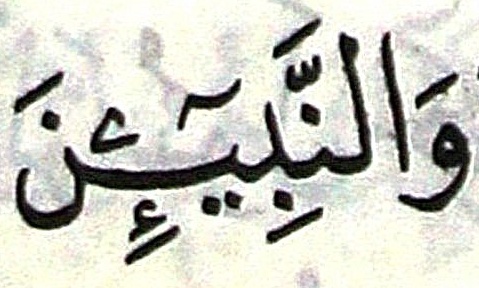 وَالنَّبِيٓـِٕۧنَ